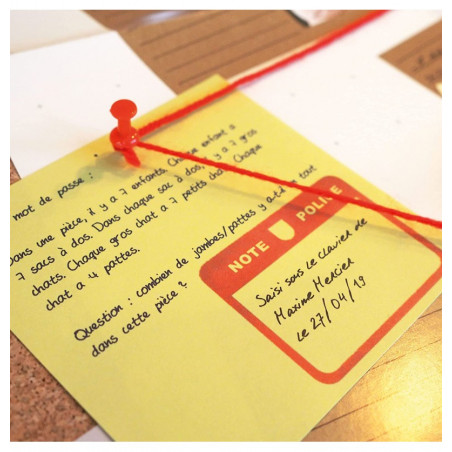 mot de passe :
Dans une pièce, il y a 7 enfants. Chaque enfant a
7 sacs à dos. Dans chaque sac à dos, il y a 7 gros
chats. Chaque gros chat a 7 petits chats. Chaque
chat a 4 pattes.
Question : combien de jambes/pattes y a-t-il tout
dans cette pièce ?
NOTE POLICE
Saisi sous le clavier de
Maxime Mercier
le 27/04/19